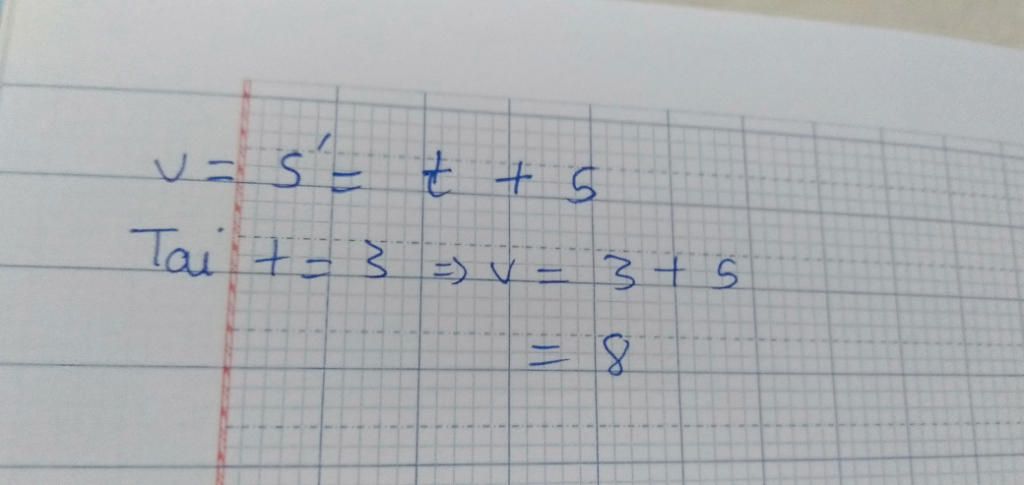 v = s' = t + 5
Tại t = 3 => v = 3 + 5
= 8